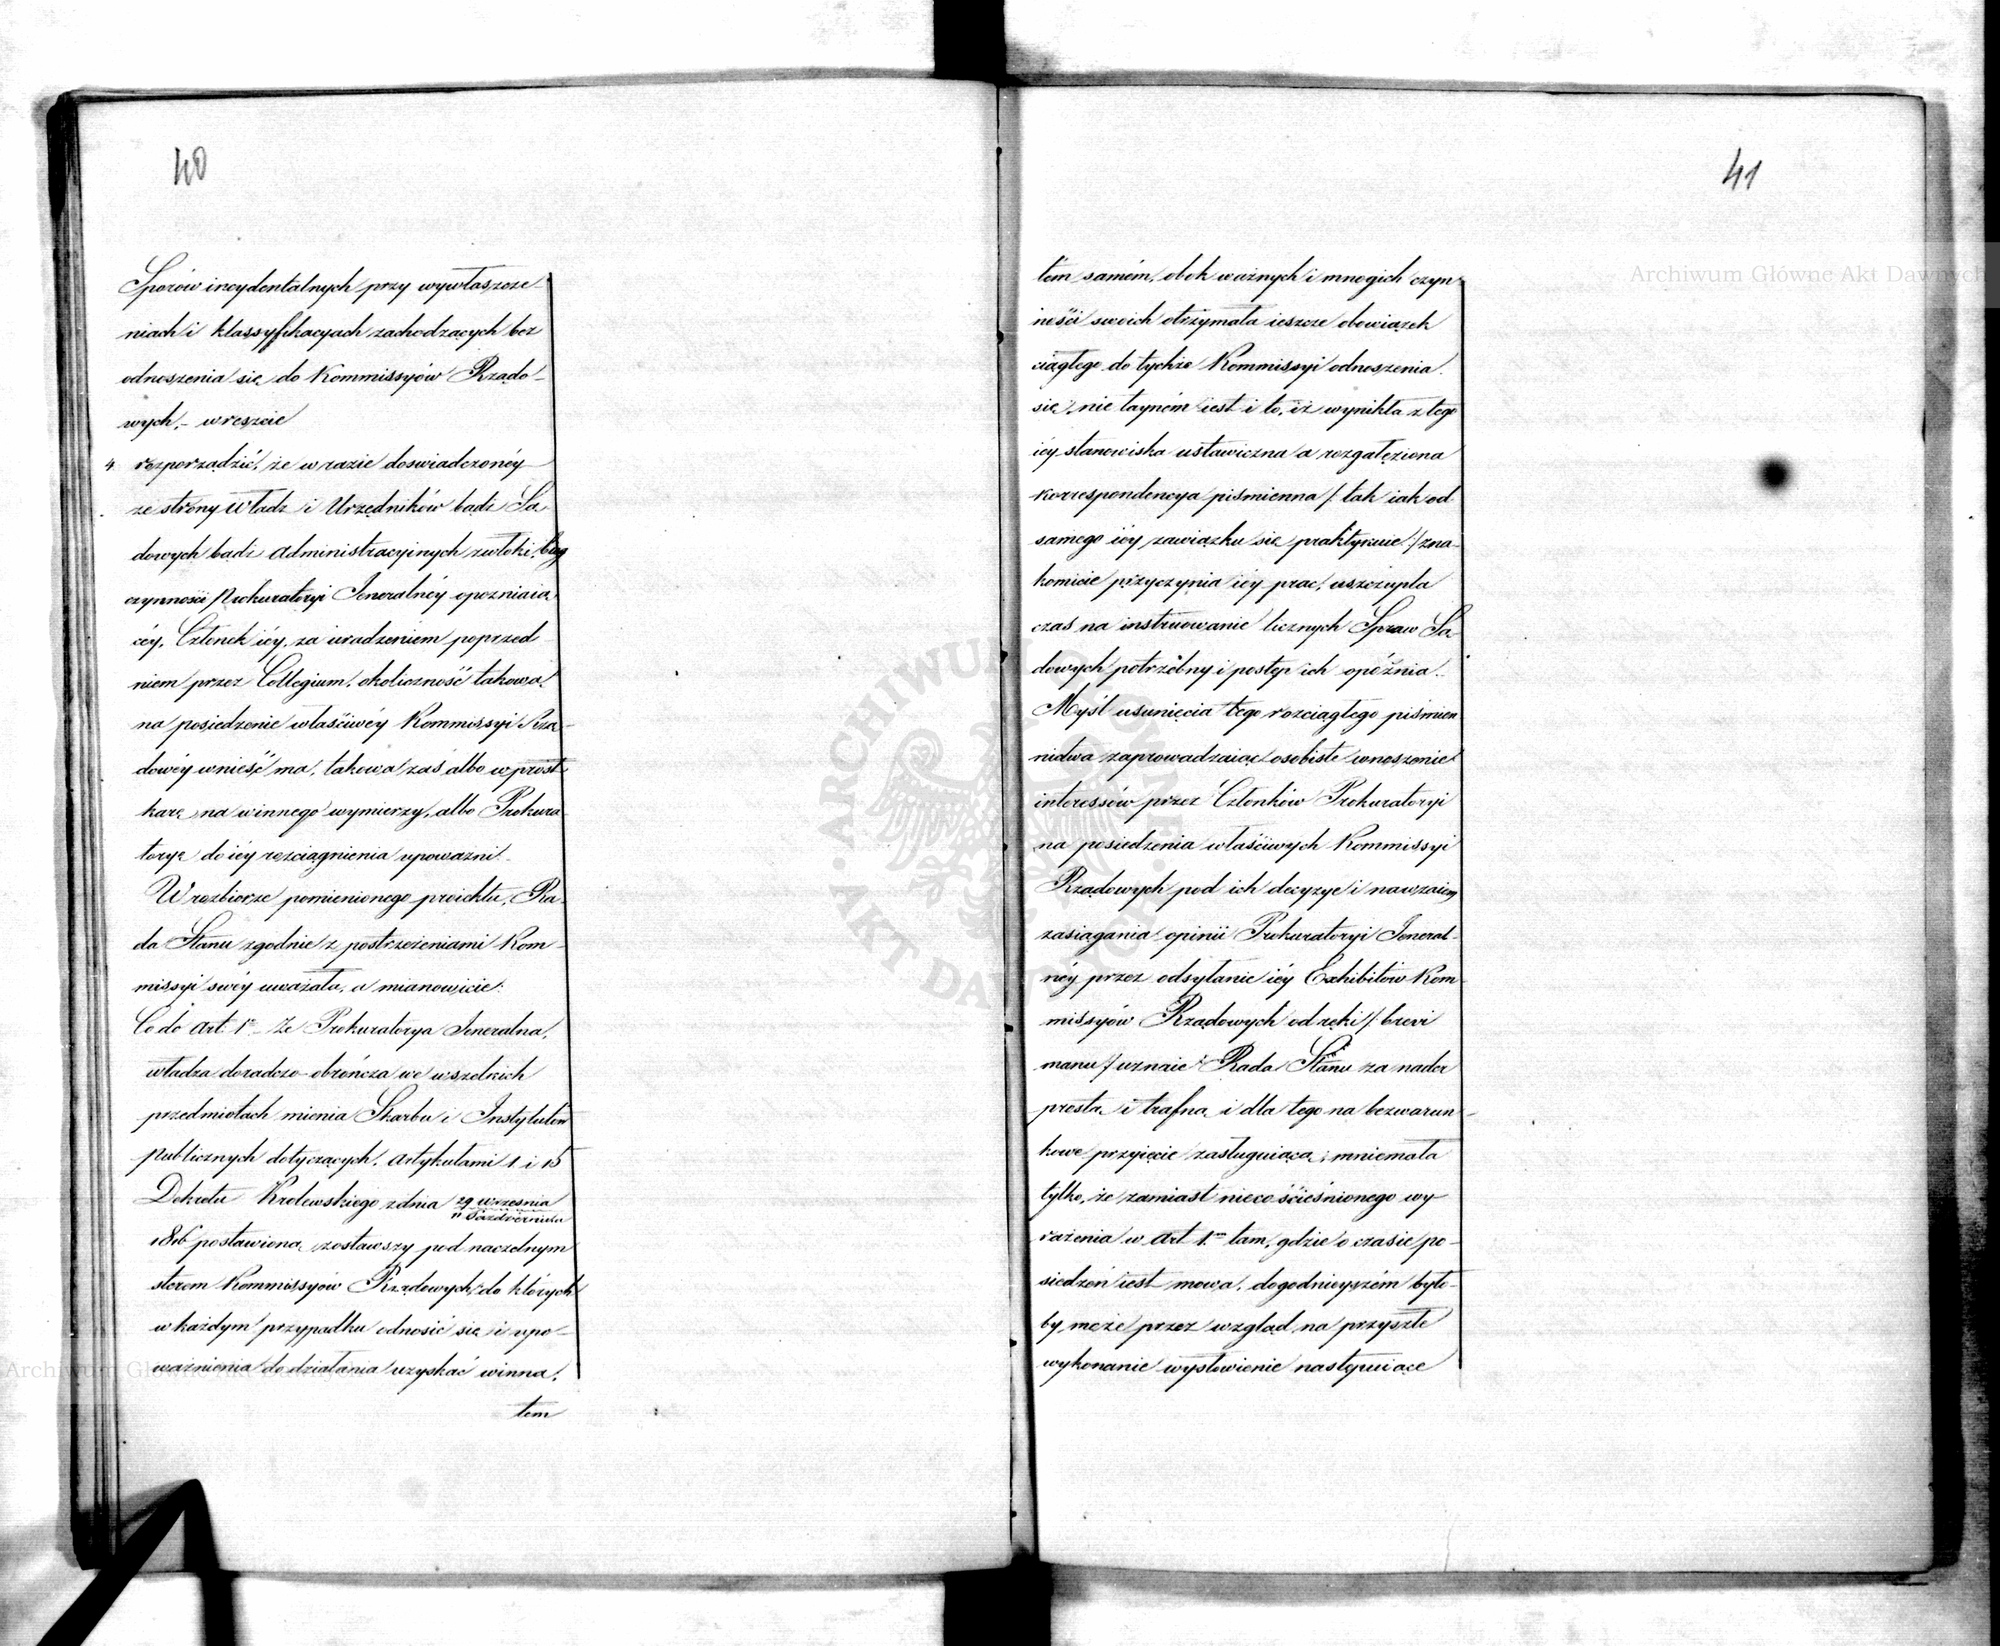 40
Sporów incydentalnych przy wywłaszcze-
niach i klassyfikacyach zachodzących bez
odnoszenia się do Kommissyów Rządo-
wych,- wreszcie
4. rozporządzić, że w razie doswiadczonéy
ze strony Władz i Urzędników bądź Są
dowych bądź administracyjnych zwłoki, bieg
czynności Prokuratoryi Jeneralnéy opozniaią
céy, Członek iéy, za uradzeniem poprzed
niem przez Collegium, okoliczność takową
na posiedzenie właściwéy Kommissyi Rzą-
dowéy wnieść ma, takowa zaś albo wprost
karę na winnego wymierzy, albo Prokura
toryą do iéy rozciągnienia upoważni.-
W rozbiorze pomienionego proiektu, Ra-
da Stanu zgodnie z postrzeżeniami Kom-
missyi swéy uważała, a mianowicie:
Co do Art. 1o Że Prokuratorya Jeneralna,
władza doradczo-obrończa we wszelkich
przedmiotach mienia Skarbu i Instytutów
publicznych dotyczących, artykułami 1 i 15
Dekretu Krolewskiego z dnia 29 Wrzesnia
11 Pazdziernika
1816 postawiona, zostawszy pod naczelnym
sterem Kommissyów Rządowych, do których
w każdym przypadku odnosić się i upo-
ważnienia do działania uzyskać winna,
tem
41
tém samém, obok ważnych i mnogich czyn-
ności swoich otrzymała ieszcze obowiązek
ciągłego do tychże Kommissyi odnoszenia
się, nie tayném iest i to, iż wynikła z tego
iéy stanowiska ustawiczna a rozgałęziona
korrespondencya piśmienna /: tak iak od
samego iéy zawiązku się praktykuie :/ zna-
komicie przyczynia iéy prac, uszczupla
czas na instruowanie licznych Spraw Są
dowych potrzebny i postęp ich opóźnia.
Myśl usunięcia tego rozciągłego piśmien
nictwa zaprowadzaiąc osobiste wnoszenie
interessów przez Członków Prokuratoryi
na posiedzenia właściwych Kommissyi
Rządowych pod ich decyzye i nawzaiem
zasiągania opinii Prokuratoryi Jeneral-
néy przez odsyłanie iéy Exhibitów Kom-
missyów Rządowych od ręki /: brevi
manu :/ uznaie Rada Stanu za nader
prostą i trafną i dla tego na bezwarun-
kowe przyięcie zasługuiącą; mniemała
tylko, że zamiast nieco ścieśnionego wy-
rażenia w Art 1m tam, gdzie o czasie po-
siedzeń iest mowa, dogodnieyszém było-
by może przez wzgląd na przyszłe
wykonanie wysłowienie następuiące
Archiwum Główne Akt Dawnych
ARCHIWUM GŁÓWNE AKT DAWNYCH
Archiwum Główne Akt Dawnych